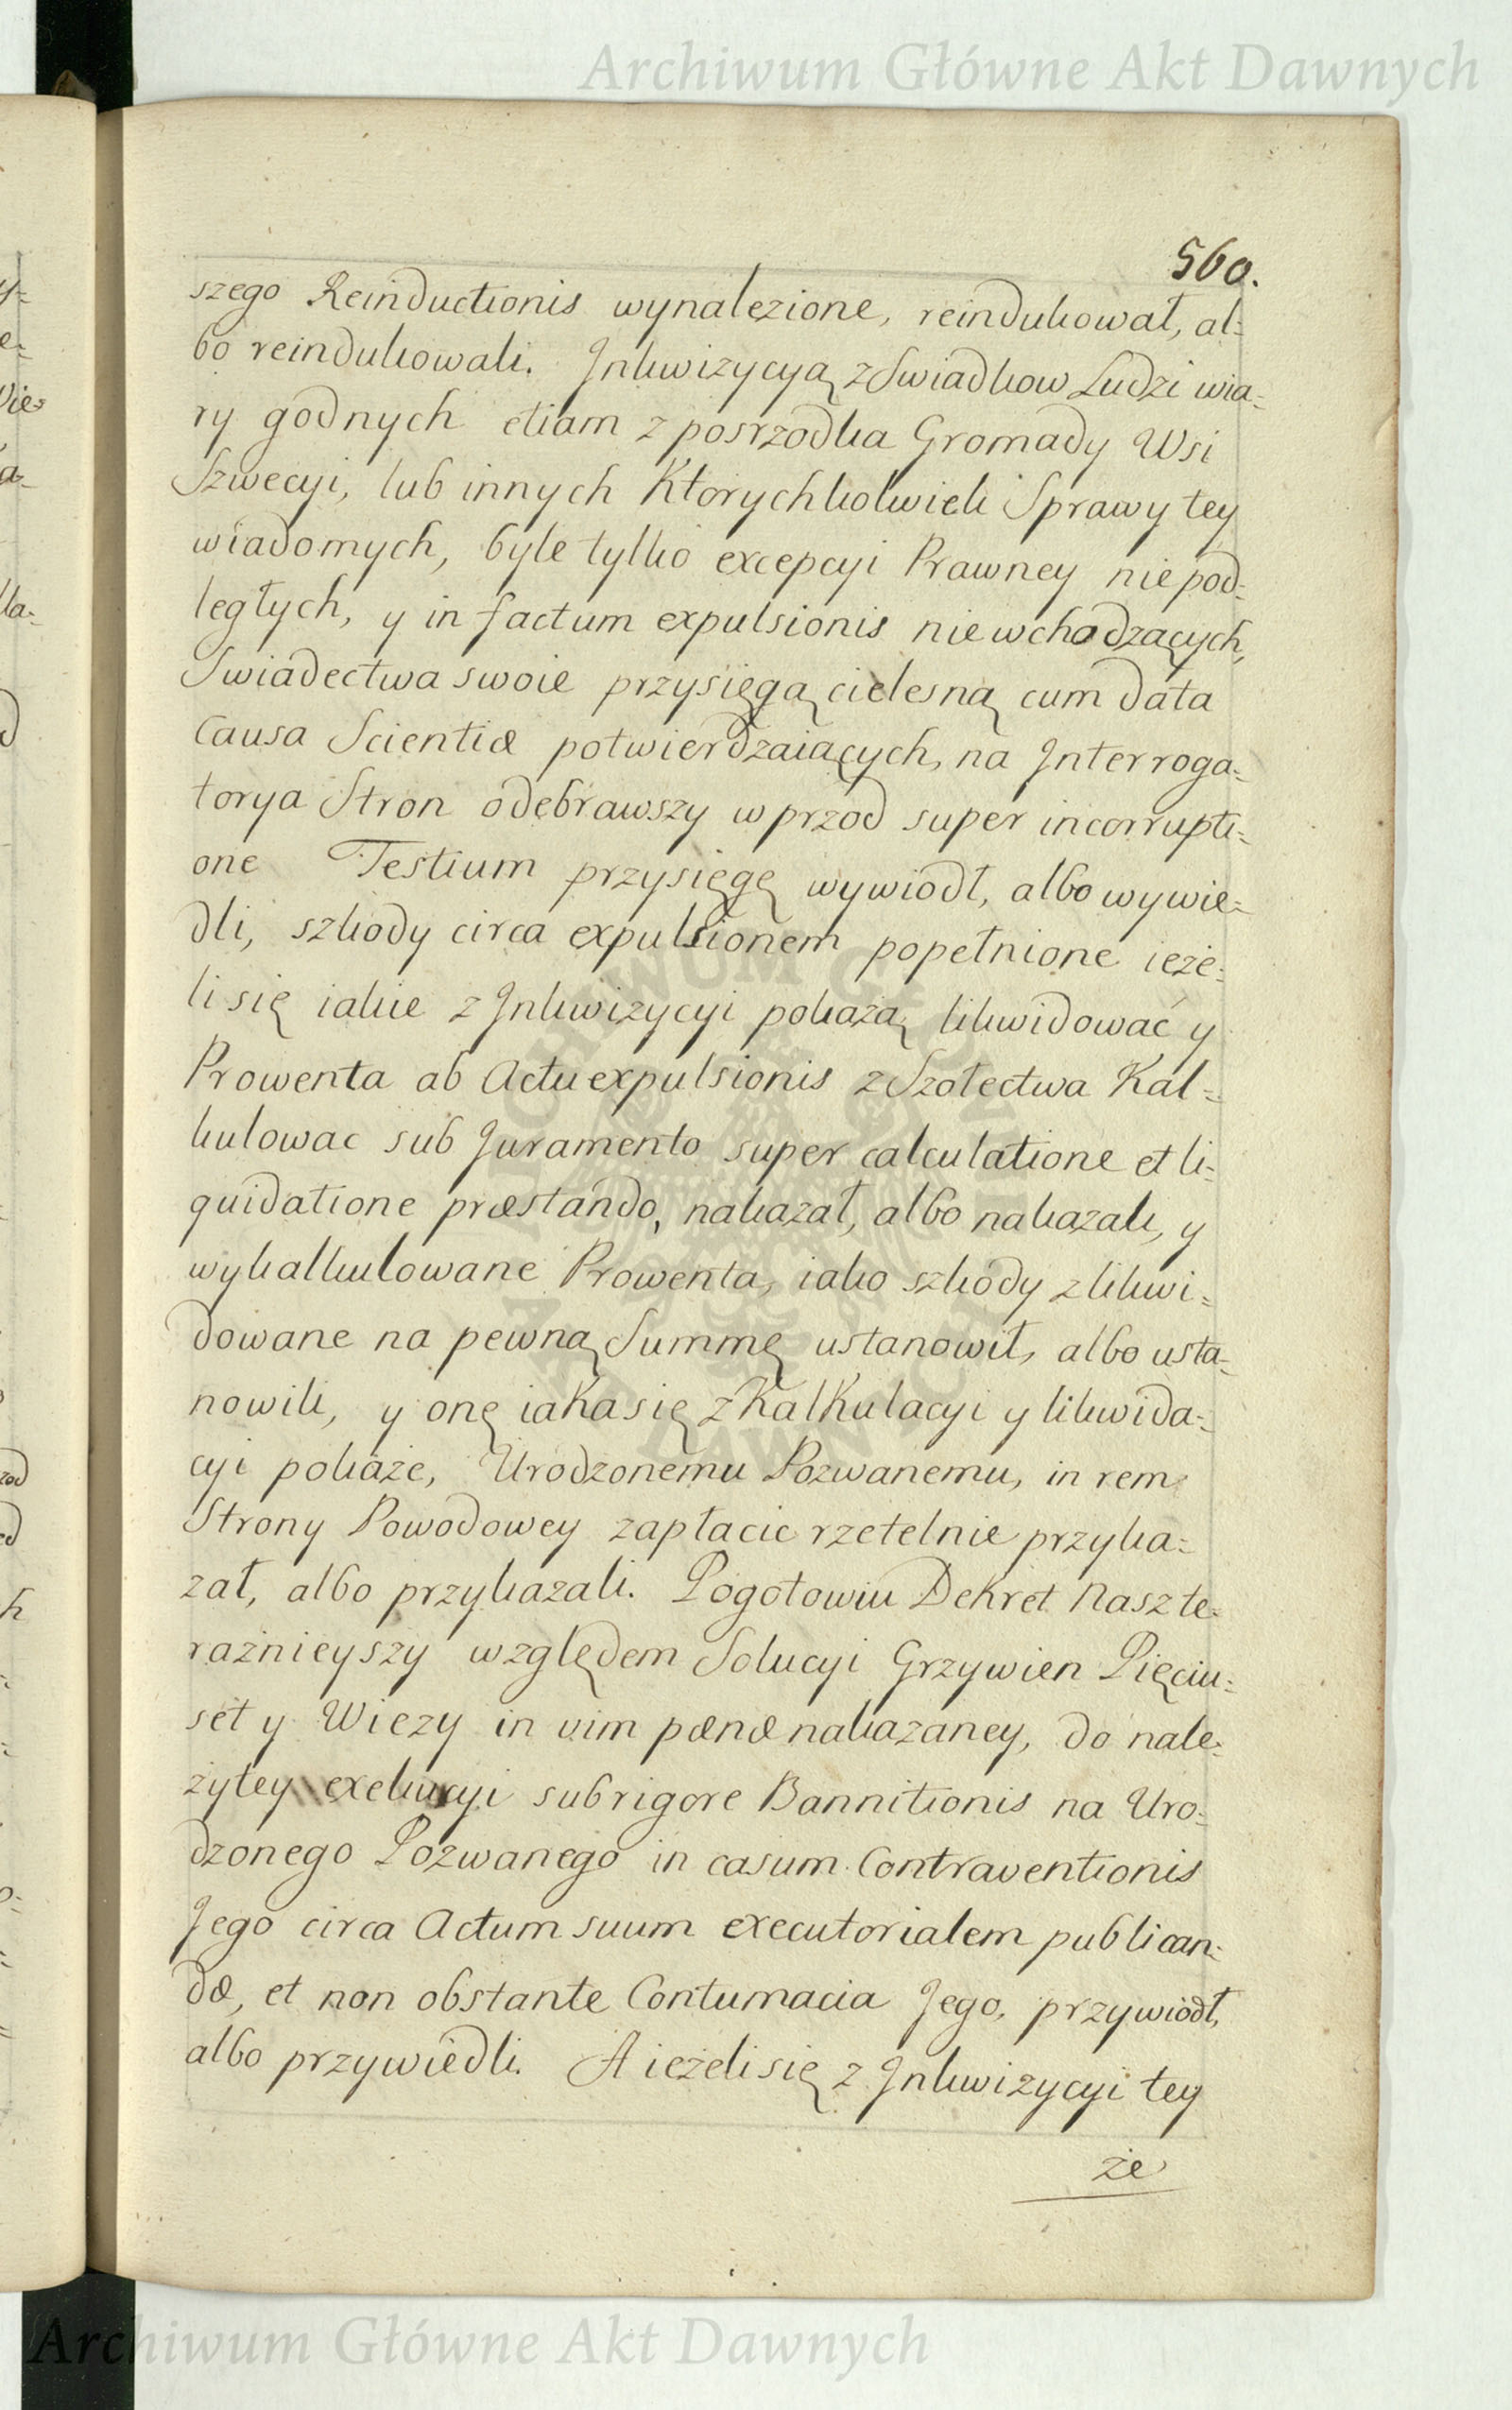 Archiwum Główne Akt Dawnych
560.
szego Reinductionis wynalezione, reindukował, al=
bo reindukowali. Inkwizycyą z Swiadkow Ludzi wia=
ry godnych etiam z posrzodka Gromady Wsi
Szwecyi, lub innych Ktorychkolwiek Sprawy tey
wiadomych, byle tylko excepcyi Prawney niepod=
ległych, y in factum expulsionis niewchodzących,
Swiadectwa swoie przysięgą cielesną cum data
Causa Scientiæ potwierdzaiących, na Interroga=
torya Stron odebrawszy wprzod super incorrupti=
one Testium przysięgę wywiodł, albo wywie=
dli, szkody circa expulsionem popełnione ieże=
li się iakie z Inkwizycyi pokażą likwidować y
Prowenta ab Actu expulsionis z Szołectwa Kal=
kulowac sub Juramento super calculatione et li=
quidatione præstando, nakazał, albo nakazali, y
wykalkulowane Prowenta, iako szkody zlikwi=
dowane na pewną Summę ustanowił, albo usta=
nowili, y onę iaka się z Kalkulacyi y likwida=
cyi pokaże, Urodzonemu Pozwanemu, in rem
Strony Powodowey zapłacic rzetelnie przyka=
zał, albo przykazali. Pogotowiu Dekret Nasz te=
raźnieyszy względem Solucyi Grzywien Pięciu=
set y Wiezy in vim pænæ nakazaney, do nale=
żytey exekucyi sub rigore Bannitionis na Uro=
dzonego Pozwanego in casum Contraventionis
Jego circa Actum suum executorialem publican=
dæ, et non obstante Contumacia Jego, przywiodł,
albo przywiedli. A ieżeli się z Inkwizycyi tey
że
Archiwum Główne Akt Dawnych